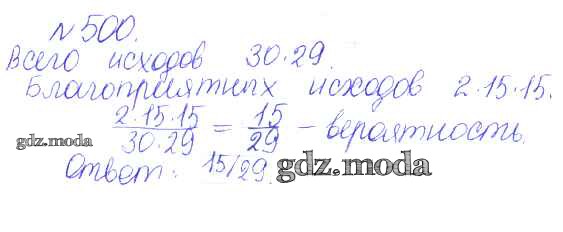 №500.
Всего исходов 30·29.
Благоприятных исходов 2·15·15.
2·15·15/30·29 = 15/29 – вероятность.
gdz.moda
Ответ: 15/29.
gdz.moda